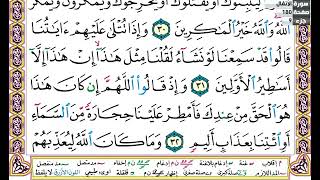 لِيُثْبِتُوكَ أَوْ يَقْتُلُوكَ أَوْ يُخْرِجُوكَ وَيَمْكُرُونَ وَيَمْكُرُ
ٱللَّهُ وَٱللَّهُ خَيْرُ ٱلْمَٰكِرِينَ ٣٠ وَإِذَا تُتْلَىٰ عَلَيْهِمْ ءَايَٰتُنَا
قَالُوا۟ قَدْ سَمِعْنَا لَوْ نَشَآءُ لَقُلْنَا مِثْلَ هَٰذَآ إِنْ هَٰذَآ إِلَّآ
أَسَٰطِيرُ ٱلْأَوَّلِينَ ٣١ وَإِذْ قَالُوا۟ ٱللَّهُمَّ إِن كَانَ هَٰذَا
هُوَ ٱلْحَقَّ مِنْ عِندِكَ فَأَمْطِرْ عَلَيْنَا حِجَارَةً مِّنَ ٱلسَّمَآءِ
أَوِ ٱئْتِنَا بِعَذَابٍ أَلِيمٍ ٣٢ وَمَا كَانَ ٱللَّهُ لِيُعَذِّبَهُمْ
سورة الأنفال
صفحة 180
جزء 9